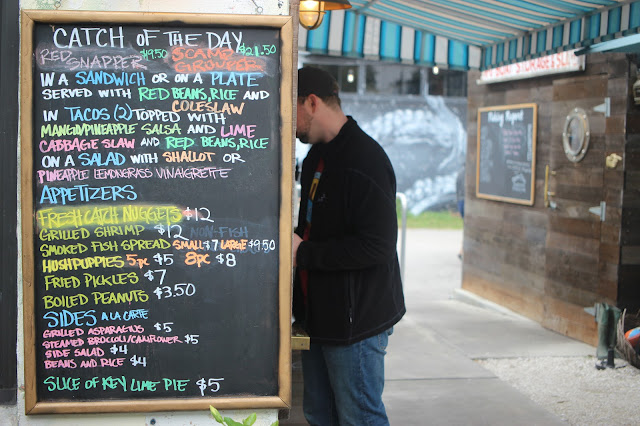 CATCH OF THE DAY
RED SNAPPER $19.50 SCAMP GROUPER $21.50
IN A SANDWICH OR ON A PLATE
SERVED WITH RED BEANS, RICE AND COLESLAW
IN TACOS (2) TOPPED WITH
MANGO/PINEAPPLE SALSA AND LIME
CABBAGE SLAW AND RED BEANS, RICE
ON A SALAD WITH SHALLOT OR
PINEAPPLE LEMONGRASS VINAIGRETTE
APPETIZERS
FRESH CATCH NUGGETS $12
GRILLED SHRIMP $12 NON-FISH
SMOKED FISH SPREAD SMALL $7 LARGE $9.50
HUSHPUPPIES 5pc $5 8pc $8
FRIED PICKLES $7
BOILED PEANUTS $3.50
SIDES A LA CARTE
GRILLED ASPARAGUS $5
STEAMED BROCCOLI/CAULIFLOWER $5
SIDE SALAD $4
BEANS AND RICE $4
SLICE OF KEY LIME PIE $5
Fishing Report